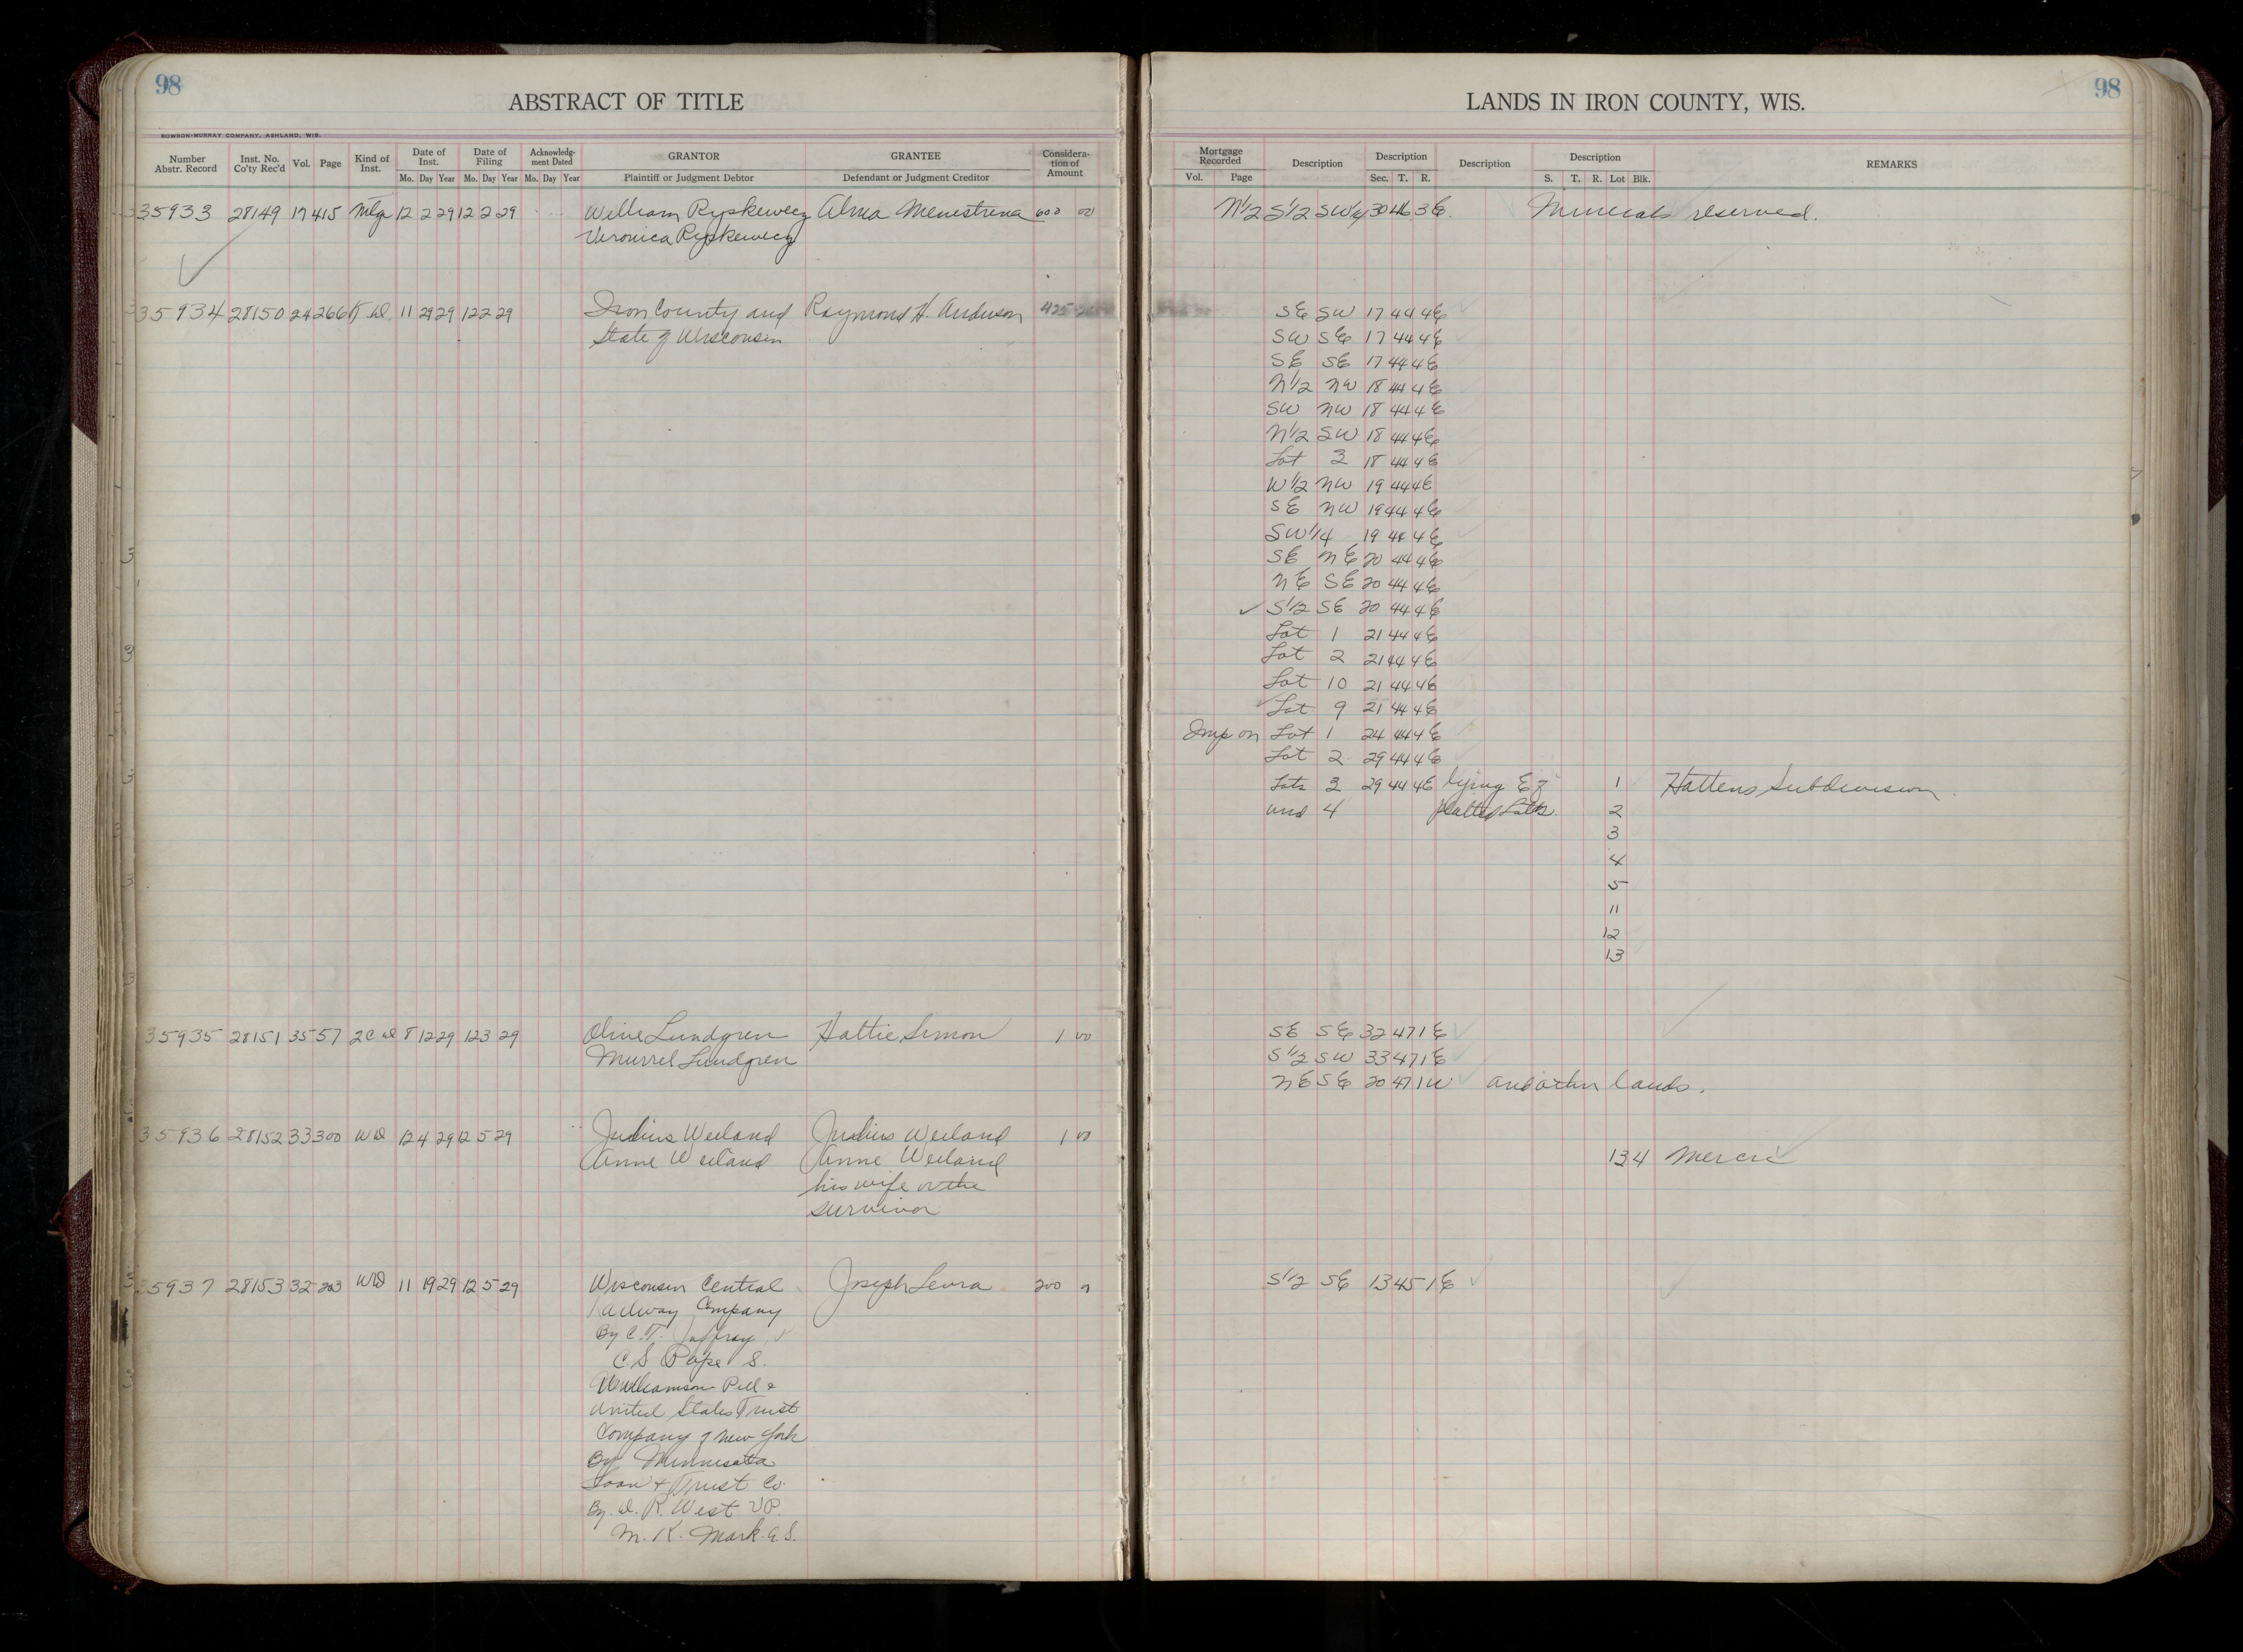 98
ABSTRACT OF TITLE
BOWRON-MURRAY COMPANY, ASHLAND, WIS.
Number Abstr. Record Inst. No. Co'ty Rec'd Vol. Page Kind of Inst. Date of Inst. Date of Filing Acknowledgment Dated GRANTOR GRANTEE Consideration of Amount
Mo. Day Year Mo. Day Year Mo. Day Year Plaintiff or Judgment Debtor Defendant or Judgment Creditor
35933 28149 17 415 Mtg 12 2 29 12 2 29 William Rypkewecz Alma Menestrina 600 00
Veronica Rypkewecz
35934 28150 24 266 11 29 29 12 2 29 Iron County and Raymond H. Anderson 425
State of Wisconsin
35935 28151 35 57 2CD 8 12 29 12 3 29 Olive Lundgren Hattie Simon 1 00
Murrel Lundgren
35936 28152 33 300 WD 12 4 29 12 5 29 Julius Weiland Julius Weiland 1 00
Anne Weiland Anne Weiland
his wife or the
survivor
35937 28153 32 203 WD 11 19 29 12 5 29 Wisconsin Central Joseph Leura 200
Railway Company
By C.T. Jaffray
C S Pope S.
Williamson Pell &
United States Trust
Company of New York
By Minnesota
Loan & Trust Co.
By D. R. West VP.
M. K. Mark A.S.
98
LANDS IN IRON COUNTY, WIS.
Mortgage Recorded Description Description Description Description REMARKS
Vol. Page Sec. T. R. S. T. R. Lot Blk.
N1/2 S1/2 SW1/4 30 46 3E. Minerals reserved.
SE SW 17 44 4E
SW SE 17 44 4E
SE SE 17 44 4E
N1/2 NW 18 44 4E
SW NW 18 44 4E
N1/2 SW 18 44 4E
Lot 3 18 44 4E
W1/2 NW 19 44 4E
SE NW 19 44 4E
SW1/4 19 44 4E
SE NE 20 44 4E
NE SE 20 44 4E
✓ S1/2 SE 20 44 4E
Lot 1 21 44 4E
Lot 2 21 44 4E
Lot 10 21 44 4E
Lot 9 21 44 4E
Imp on Lot 1 24 44 4E
Lot 2 29 44 4E
Lots 3 29 44 4E lying E of 1 Hattens Subdivision
and 4 platted Lots. 2
3
4
5
11
12
13
SE SE 32 47 1E
S1/2 SW 33 47 1E
NE SE 20 47 1W and other lands.
134 Mercer
S1/2 SE 13 45 1E